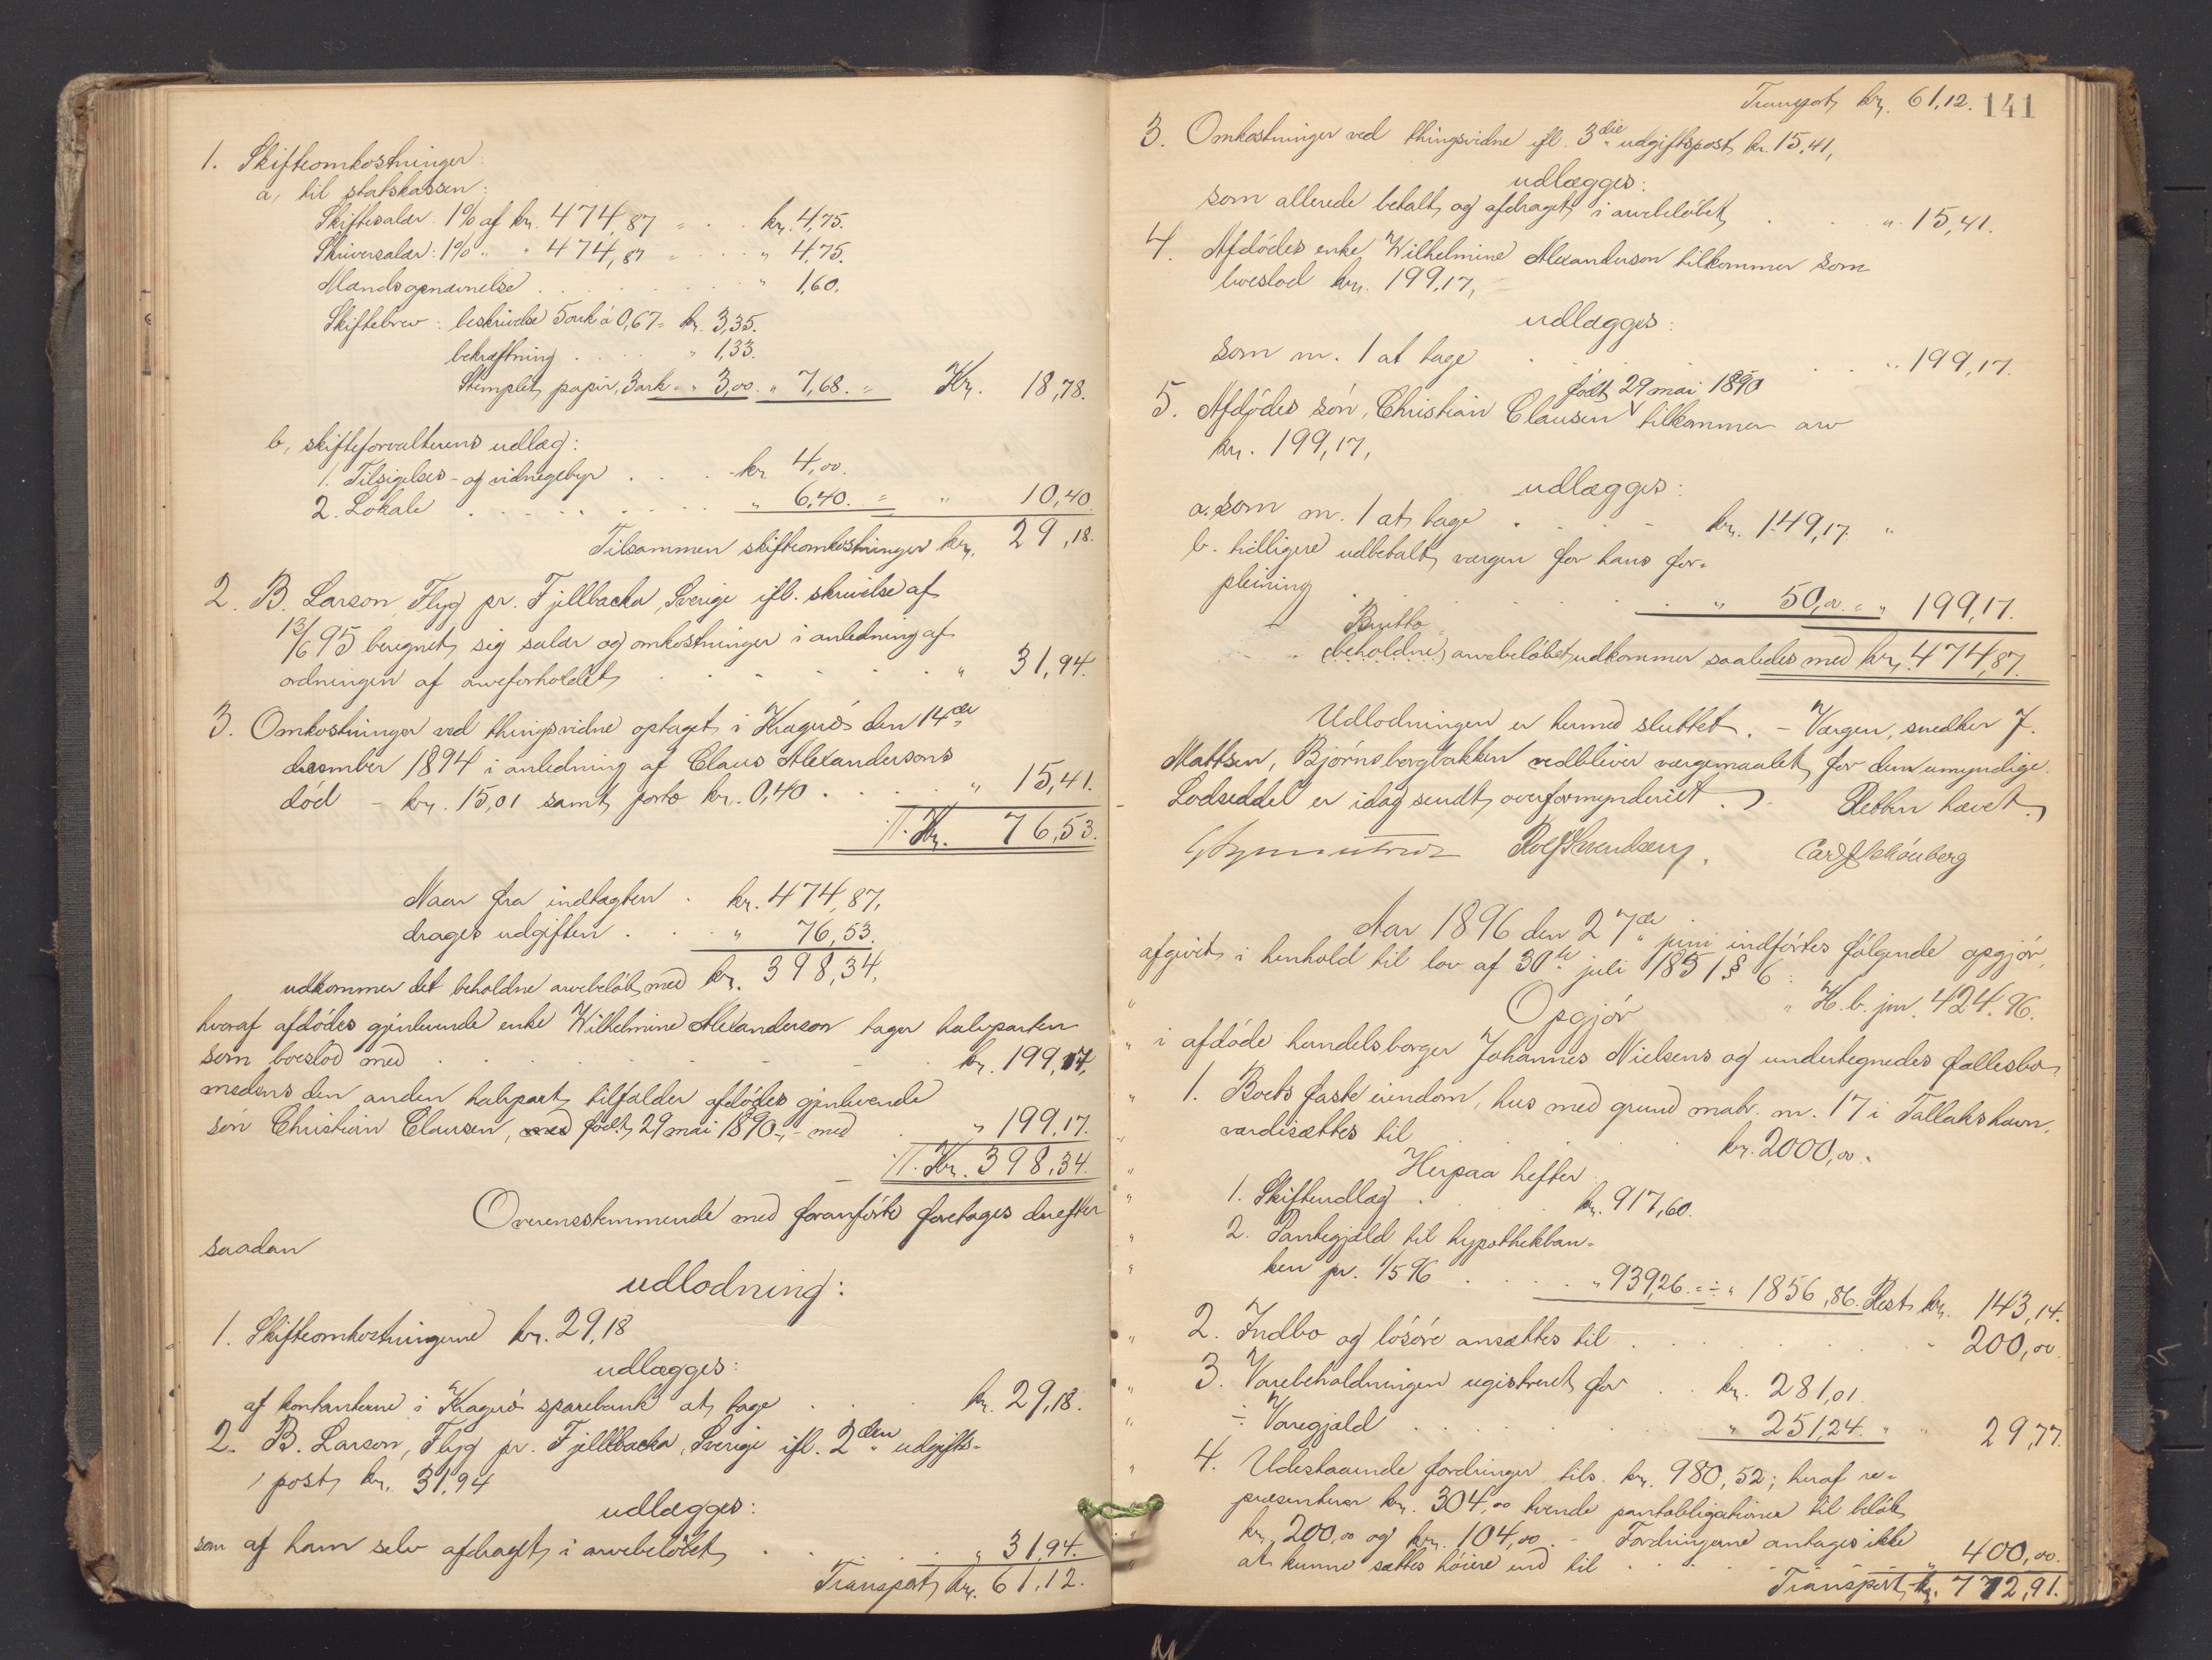 1. Skifteomkostninger:
a, til statskassen:
Skiftesalær: 1% af kr. 474,87 = . . kr. 4,75.
Skriversalær: 1% " " 474,87 = . . . " 4,75.
Mandsopnævnelse . . . . . . . " 1,60.
Skiftebrev: beskrivelse 5 ark à 0,67 = kr. 3,35.
bekræftning . . . . " 1,33.
Stemplet papir, 3 ark = " 3,00. " 7,68. = Kr. 18,78.
b, skifteforvalterens udlæg:
1. Tilsigelses- og vidnegebyr . . . kr. 4,00.
2. Lokale . . . . . . . " 6,40. = " 10,40.
Tilsammen skifteomkostninger kr. 29,18.
2. B. Larson, Flyg pr. Fjellbacka, Sverige ifl. skrivelse af
13/6 95 beregnet sig salær og omkostninger i anledning af
ordningen af arveforholdet . . . . . . " 31,94.
3. Omkostninger ved thingsvidne optaget i Kragerø den 14de
december 1894 i anledning af Claus Alexandersons
død – kr. 15,01 samt porto kr. 0,40 . . . . " 15,41.
T. Kr. 76,53.
Naar fra indtægten . kr. 474,87,
drages udgiften . . . " 76,53.
udkommer det beholdne arvebeløb med kr. 398,34,
hvoraf afdødes gjenlevende enke Wilhelmine Alexanderson tager halvparten
som boeslod med . . . . . . . kr. 199,17,
medens den anden halvpart tilfalder afdødes gjenlevende
søn Christian Clausen, med født 29 mai 1890, – med . " 199,17.
T. Kr. 398,34.
Overensstemmende med foranførte foretages derefter
saadan
udlodning:
1. Skifteomkostningerne kr. 29,18
udlægges:
af kontanterne i Kragerø sparebank at tage . . kr. 29,18.
2. B. Larson, Flyg pr. Fjellbacka, Sverige ifl. 2den udgifts-
post kr. 31,94
udlægges:
som af ham selv afdraget i arvebeløbet . . . . " 31,94.
Transport kr. 61,12.
Transport kr. 61,12. 141
3. Omkostninger ved thingsvidne ifl. 3die udgiftspost kr. 15,41,
udlægges:
som allerede betalt og afdraget i arvebeløbet . . . " 15,41.
4. Afdødes enke, Wilhelmine Alexanderson tilkommer som
boeslod kr. 199,17,
udlægges:
som nr. 1 at tage . . . . . . " 199,17.
født 29 mai 1890
5. Afdødes søn, Christian Clausen tilkommer arv
kr. 199,17,
udlægges:
a. som nr. 1 at tage . . . . kr. 149,17. "
b. tidligere udbetalt værgen for hans for-
pleining . . . . . . " 50,00 = " 199,17.
Brutto
(beholdne) arvebeløbet udkommer saaledes med kr. 474,87.
Udlodningen er hermed sluttet. – Værgen, snedker J.
Mattsen, Bjørnsborgbakken vedbliver værgemaalet for den umyndige.
Lodseddel er idag sendt overformynderiet. – Retten hævet.
Rolf Svendsen. Carl J. Skönberg
Aar 1896 den 27de juni indførtes følgende opgjør,
afgivet i henhold til lov af 30te juli 1851 § 6:
Opgjør " K. b. jnr. 424. 96.
" i afdøde handelsborger Johannes Nielsens og undertegnedes fællesbo.
" 1. Boets faste eiendom, hus med grund matr. nr. 17 i Tallakshavn,
" værdisættes til . . . . . kr. 2000,00.
" Herpaa hefter
" 1. Skifteudlæg . . . . kr. 917,60.
" 2. Pantegjæld til hypothekban-
" ken pr. 1/5 96 . . . . " 939,26 = ÷ " 1856,86. Rest kr. 143,14.
" 2. Indbo og løsøre ansættes til . . . . . . " 200,00.
" 3. Varebeholdningen registreret for . . kr. 281,01.
" ÷ Varegjæld . . . . . . " 251,24. " " 29,77.
" 4. Udestaaende fordringer tils. kr. 980,52; heraf re-
præsenterer kr. 304,00 tvende pantobligationer til beløb
" kr. 200,00 og kr. 104,00. – Fordringerne antages ikke
at kunne sættes høiere end til . . . . . " 400,00.
Transport kr. 772,91.